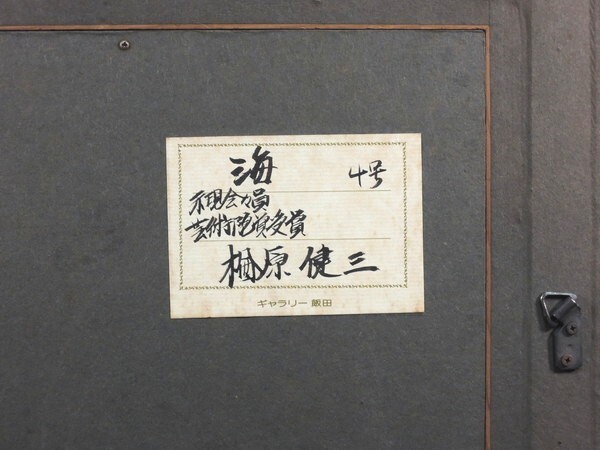 海 4号
示現会々員
芸術院賞受賞
楢原健三
ギャラリー 飯田